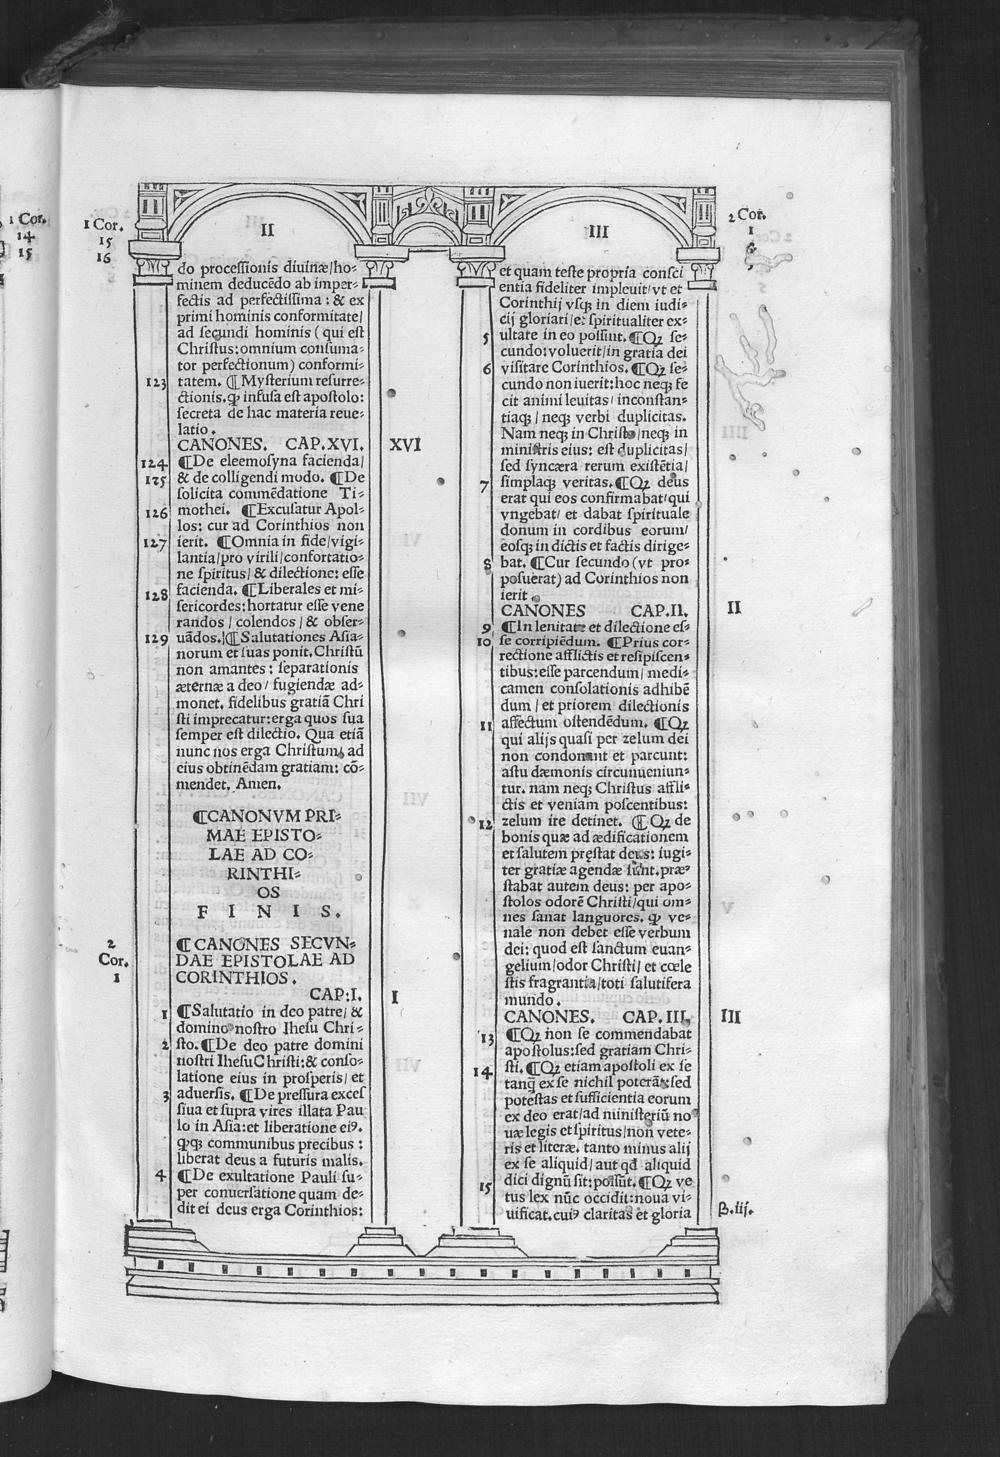 1 Cor.
14
15
1 Cor.
15
16
II
do processionis diuinæ/ho⸗
minem deducēdo ab imper⸗
fectis ad perfectissima : & ex
primi hominis conformitate/
ad secundi hominis ( qui est
Christus: omnium consuma⸗
tor perfectionum) conformi⸗
123 tatem. ¶ Mysterium resurre⸗
ctionis. ꝙ infusa est apostolo:
secreta de hac materia reue⸗
latio.
CANONES. CAP.XVI. XVI
124 ¶De eleemosyna facienda/
125 & de colligendi modo. ¶De
solicita commēdatione Ti⸗
126 mothei. ¶Excusatur Apol⸗
los: cur ad Corinthios non
127 ierit. ¶Omnia in fide/vigi⸗
lantia/pro virili/confortatio⸗
ne spiritus/ & dilectione: esse
128 facienda. ¶Liberales et mi⸗
sericordes: hortatur esse vene
randos / colendos / & obser⸗
129 uādos. ¶Salutationes Asia⸗
norum et suas ponit. Christū
non amantes : separationis
æternæ a deo/ fugiendæ ad⸗
monet. fidelibus gratiā Chri
sti imprecatur: erga quos sua
semper est dilectio. Qua etiā
nunc nos erga Christum, ad
eius obtinēdam gratiam: cō⸗
mendet. Amen.
¶CANONVM PRI⸗
MAE EPISTO⸗
LAE AD CO⸗
RINTHI⸗
OS
F I N I S.
2
Cor.
1
¶CANONES SECVN⸗
DAE EPISTOLAE AD
CORINTHIOS.
CAP:I. I
1 ¶Salutatio in deo patre/ &
domino nostro Ihesu Chri⸗
2 sto. ¶De deo patre domini
nostri Ihesu Christi: & conso⸗
latione eius in prosperis/ et
3 aduersis. ¶De pressura exces
siua et supra vires illata Pau
lo in Asia: et liberatione eiꝰ.
ꝙqꝫ communibus precibus :
liberat deus a futuris malis.
4 ¶De exultatione Pauli su⸗
per conuersatione quam de⸗
dit ei deus erga Corinthios:
2 Cor.
1
III
et quam teste propria consci
entia fideliter impleuit/vt et
Corinthij vsqꝫ in diem iudi⸗
cij gloriari/et spiritualiter ex⸗
5 ultate in eo possint. ¶Qꝫ se⸗
cundo: voluerit/in gratia dei
6 visitare Corinthios. ¶Qꝫ se⸗
cundo non iuerit: hoc neqꝫ fe
cit animi leuitas/ inconstan⸗
tiaqꝫ / neqꝫ verbi duplicitas.
Nam neqꝫ in Christo /neqꝫ in
ministris eius: est duplicitas/
sed syncæra rerum existētia/
7 simplaqꝫ veritas. ¶Qꝫ deus
erat qui eos confirmabat/qui
vngebat/ et dabat spirituale
donum in cordibus eorum/
eosqꝫ in dictis et factis dirige⸗
8 bat. ¶Cur secundo (vt pro⸗
posuerat) ad Corinthios non
ierit.
CANONES CAP.II. II
9 ¶In lenitate et dilectione es⸗
10 se corripiēdum. ¶Prius cor⸗
rectione afflictis et resipiscen⸗
tibus: esse parcendum/ medi⸗
camen consolationis adhibē
dum / et priorem dilectionis
11 affectum ostendēdum. ¶Qꝫ
qui alijs quasi per zelum dei
non condonant et parcunt:
astu dæmonis circunueniun⸗
tur. nam neqꝫ Christus affli⸗
ctis et veniam poscentibus:
12 zelum ire detinet. ¶Qꝫ de
bonis quæ ad ædificationem
et salutem pręstat deus: iugi⸗
ter gratiæ agendæ sunt. præ⸗
stabat autem deus: per apo⸗
stolos odorē Christi/qui om⸗
nes sanat languores. ꝙ ve⸗
nale non debet esse verbum
dei: quod est sanctum euan⸗
gelium/odor Christi/ et cœle
stis fragrantia/toti salutifera
mundo.
CANONES. CAP. III. III
13 ¶Qꝫ non se commendabat
apostolus: sed gratiam Chri⸗
14 sti. ¶Qꝫ etiam apostoli ex se
tanq̄ ex se nichil poterāt: sed
potestas et sufficientia eorum
ex deo erat/ad ministeriū no
uæ legis et spiritus/non vete⸗
ris et literæ. tanto minus alij
ex se aliquid/ aut qd aliquid
15 dici dignū sit: possūt. ¶Qꝫ ve
tus lex nūc occidit: noua vi⸗
uificat. cuiꝰ claritas et gloria
β.iij.